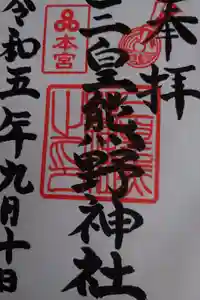 奉拝
三皇熊野神社
本宮
令和五年九月十日